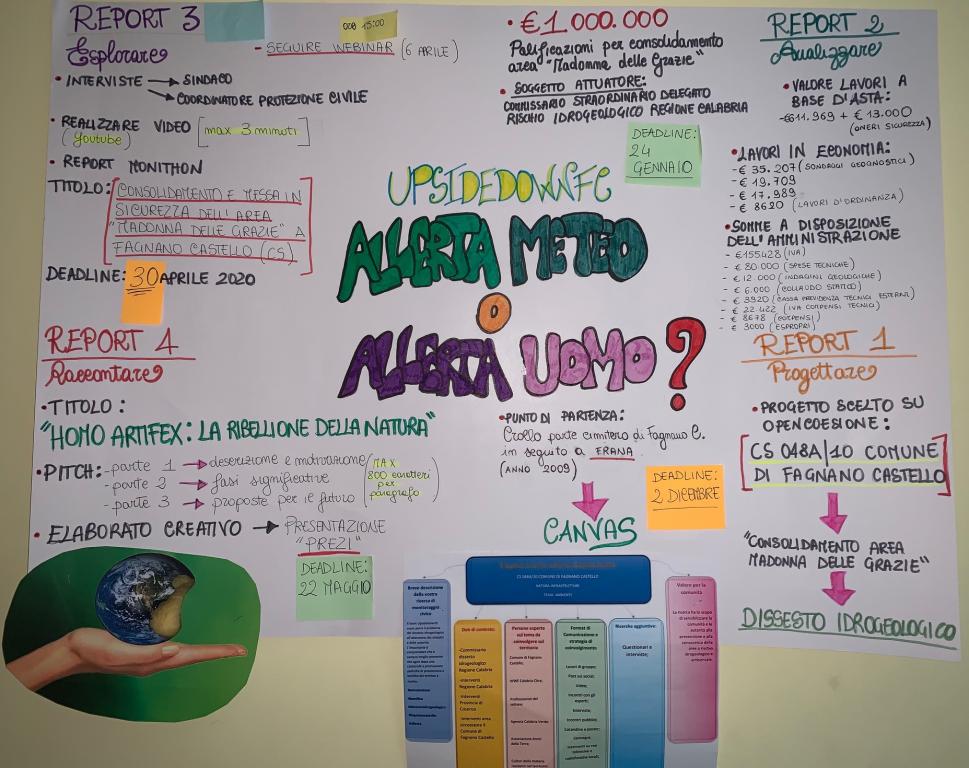 REPORT 3
Esplorare
ore 15:00
- SEGUIRE WEBINAR (6 APRILE)
• INTERVISTE → SINDACO
→ COORDINATORE PROTEZIONE CIVILE
• REALIZZARE VIDEO [max 3 minuti]
(Youtube)
• REPORT MONITHON
TITOLO: CONSOLIDAMENTO E MESSA IN
SICUREZZA DELL'AREA
"MADONNA DELLE GRAZIE" A
FAGNANO CASTELLO (CS)
DEADLINE: 30 APRILE 2020
REPORT 4
Raccontare
• TITOLO:
"HOMO ARTIFEX: LA RIBELLIONE DELLA NATURA"
• PITCH: - parte 1 → descrizione e motivazione
- parte 2 → fasi significative
- parte 3 → proposte per il futuro
(MAX
800 caratteri
per
paragrafo)
• ELABORATO CREATIVO → PRESENTAZIONE
"PREZI"
DEADLINE:
22 MAGGIO
• €1.000.000
Palificazioni per consolidamento
area "Madonna delle Grazie"
• SOGGETTO ATTUATORE:
COMMISSARIO STRAORDINARIO DELEGATO
RISCHIO IDROGEOLOGICO REGIONE CALABRIA
DEADLINE:
24
GENNAIO
UPSIDEDOWNFC
ALLERTA METEO
O
ALLERTA UOMO?
• PUNTO DI PARTENZA:
Crollo parte cimitero di Fagnano C.
in seguito a FRANA
(ANNO 2009)
DEADLINE:
2 DICEMBRE
CANVAS
REPORT 2
Analizzare
• VALORE LAVORI A
BASE D'ASTA:
- €611.969 + €13.000
(ONERI SICUREZZA)
• LAVORI IN ECONOMIA:
- € 35.207 (SONDAGGI GEOGNOSTICI)
- € 19.709
- € 17.989
- € 8620 (LAVORI D'ORDINANZA)
• SOMME A DISPOSIZIONE
DELL'AMMINISTRAZIONE
- €155.428 (IVA)
- € 80.000 (SPESE TECNICHE)
- € 12.000 (INDAGINI GEOLOGICHE)
- € 6.000 (COLLAUDO STATICO)
- € 3920 (CASSA PREVIDENZA TECNICI ESTERNI)
- € 22.422 (IVA COMPENSI TECNICI)
- € 8678
- € 3000 (ESPROPRI)
REPORT 1
Progettare
• PROGETTO SCELTO SU
OPENCOESIONE:
[CS 048A/10 COMUNE
DI FAGNANO CASTELLO]
"CONSOLIDAMENTO AREA
MADONNA DELLE GRAZIE"
DISSESTO IDROGEOLOGICO
CS 048A/10 COMUNE DI FAGNANO CASTELLO
Breve descrizione
della vostra
ricerca di
monitoraggio
civico
Dati di contesto:
-Commissario
dissesto
idrogeologico
Regione Calabria
-Interventi
Regione Calabria
-Interventi
Provincia di
Cosenza
-Interventi area
circostante il
Comune di
Fagnano Castello
Persone esperte
sul tema da
coinvolgere sul
territorio
Format di
Comunicazione e
strategia di
coinvolgimento
Ricerche aggiuntive:
Questionari e
interviste;
Valore per la
comunità